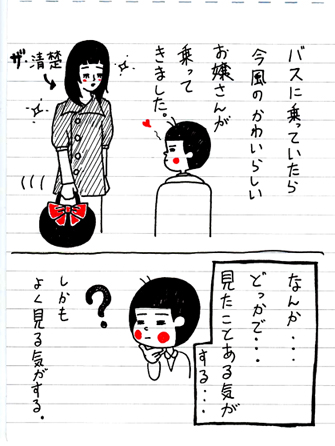 バスに乗っていたら
今風のかわいらしい
お嬢さんが
乗って
きました。
ザ・清楚
なんか・・・
どっかで・・・
見たことある気が
する・・・
?
しかも
よく見る気がする。